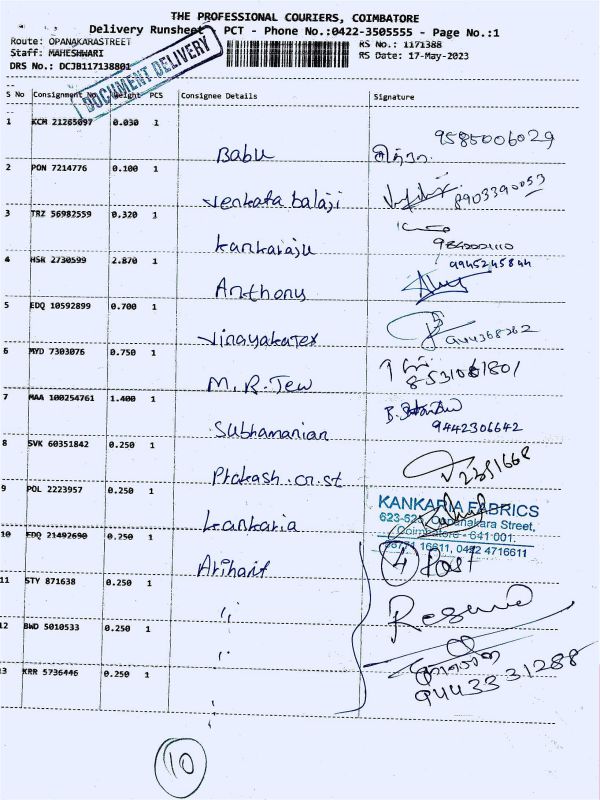 THE PROFESSIONAL COURIERS, COIMBATORE
Delivery Runsheet PCT - Phone No.:0422-3505555 - Page No.:1
Route: OPANAKARASTREET
RS No.: 1171388
Staff: MAHESHWARI
RS Date: 17-May-2023
DRS No.: DCJB117138801
DOCUMENT DELIVERY
S No Consignment No Weight PCS Consignee Details Signature
1 KCM 21265097 0.030 1
Babu 9585006029
2 PON 7214776 0.100 1
Venkata balaji 8903390053
3 TRZ 56982559 0.320 1
kankaraju 9842001110
4 HSR 2730599 2.870 1
Anthony 9945245844
5 EDQ 10592899 0.700 1
Vinayakatex
6 MYD 7303076 0.750 1
M.R.Tew 8531081801
7 MAA 100254761 1.400 1
Subhamanian 9442306642
8 SVK 60351842 0.250 1
Prakash 2391668
9 POL 2223957 0.250 1
kankaria
KANKARIA FABRICS
623-625, Opanakara Street,
Coimbatore - 641 001.
98771 16611, 0422 4716611
10 EDQ 21492690 0.250 1
Arihant 4 Post
11 STY 871638 0.250 1
"
12 BWD 5010533 0.250 1
"
13 KRR 5736446 0.250 1
" 94433 31288
10